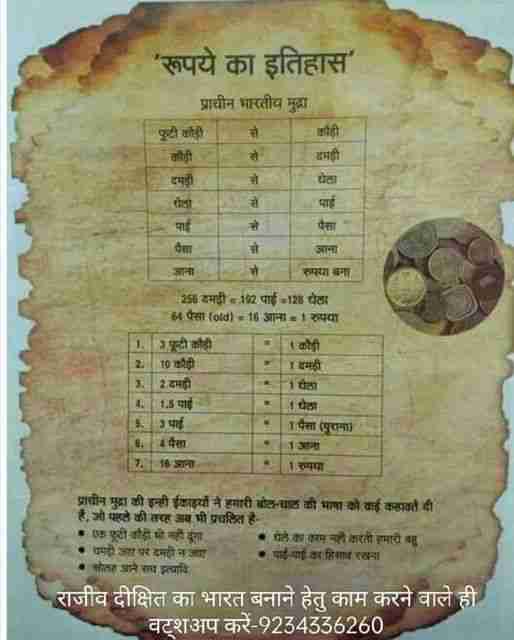 'रूपये का इतिहास'
प्राचीन भारतीय मुद्रा
फूटी कौड़ी से कौड़ी
कौड़ी से दमड़ी
दमड़ी से धेला
धेला से पाई
पाई से पैसा
पैसा से आना
आना से रुपया बना
256 दमड़ी = 192 पाई =128 धेला
64 पैसा (old) = 16 आना = 1 रुपया
1. 3 फूटी कौड़ी = 1 कौड़ी
2. 10 कौड़ी = 1 दमड़ी
3. 2 दमड़ी = 1 धेला
4. 1.5 पाई = 1 धेला
5. 3 पाई = 1 पैसा (पुराना)
6. 4 पैसा = 1 आना
7. 16 आना = 1 रुपया
प्राचीन मुद्रा की इन्ही ईकाइयों ने हमारी बोल-चाल की भाषा को कई कहावतें दी
हैं, जो पहले की तरह अब भी प्रचलित है-
• एक फूटी कौड़ी भी नही दूंगा
• धेले का काम नही करती हमारी बहु
• चमड़ी जाए पर दमड़ी न जाए
• पाई-पाई का हिसाब रखना
• सोलह आने सच इत्यादि
राजीव दीक्षित का भारत बनाने हेतु काम करने वाले ही
वट्शअप करें-9234336260